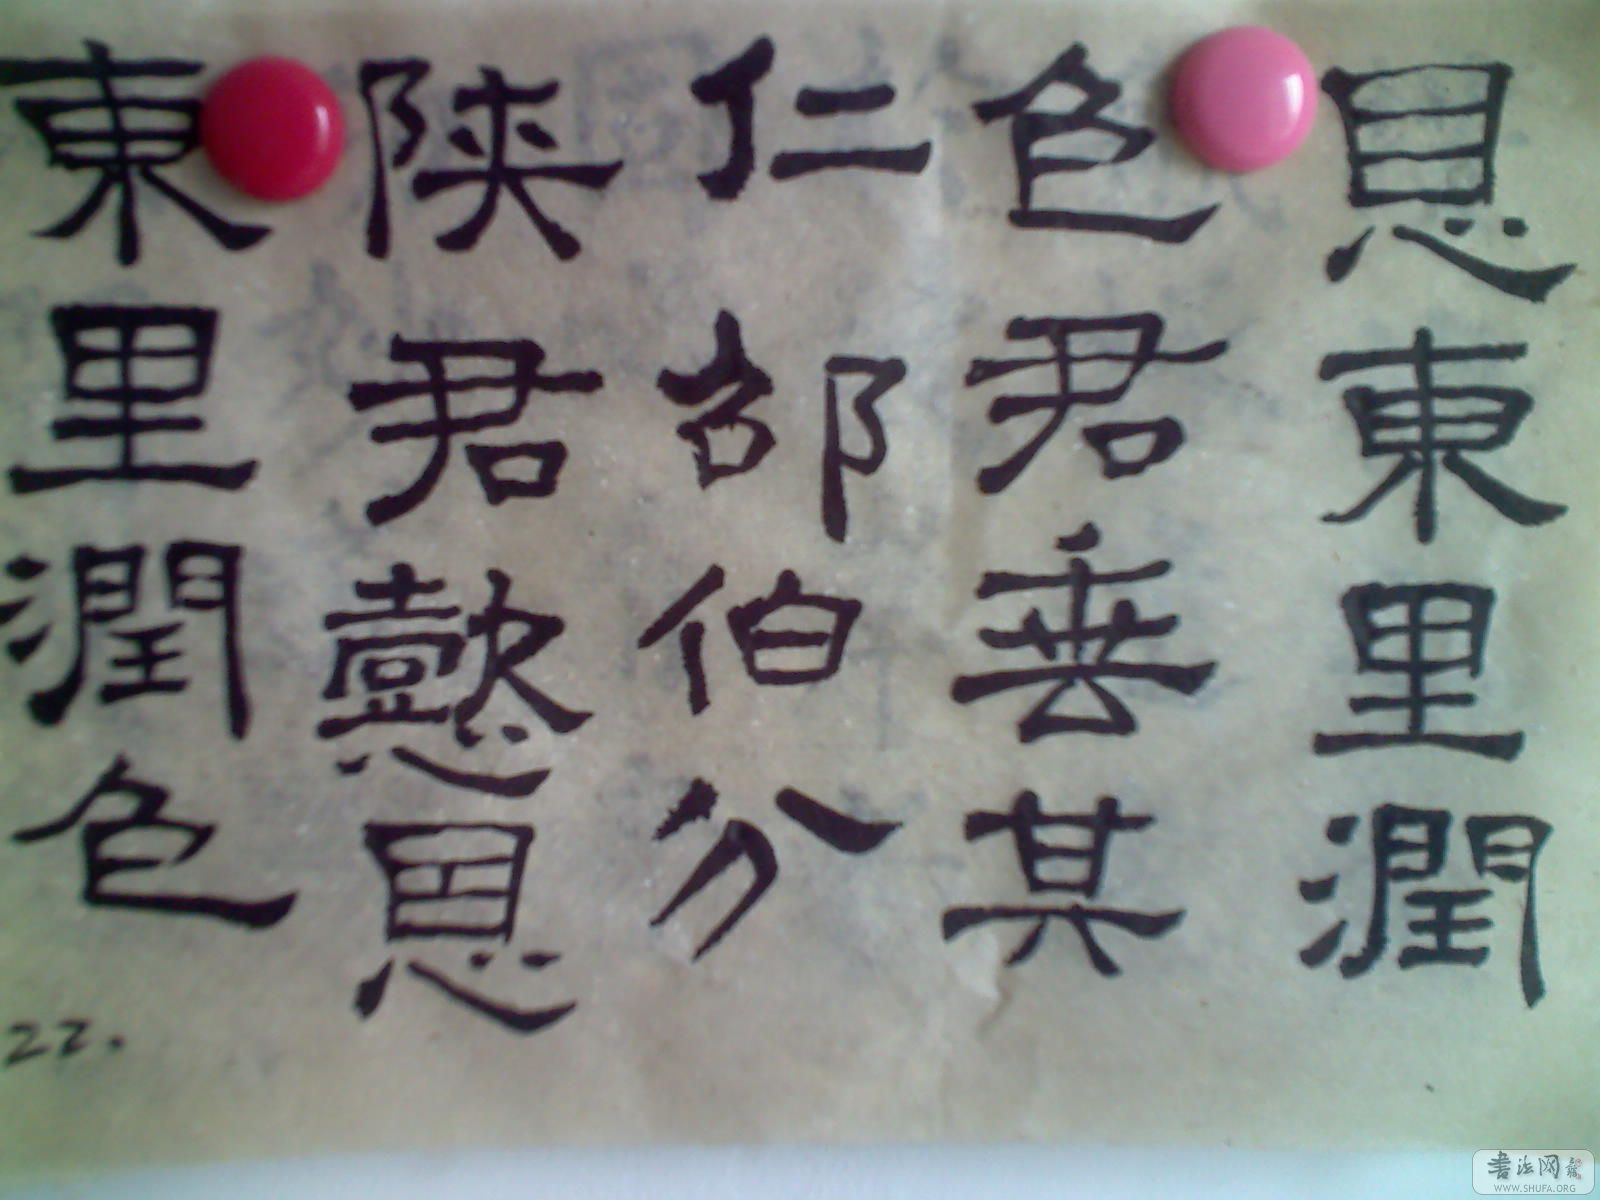 恩東里潤
色君垂其
仁邵伯分
陝君懿恩
東里潤色
22.
書法网
WWW.SHUFA.ORG